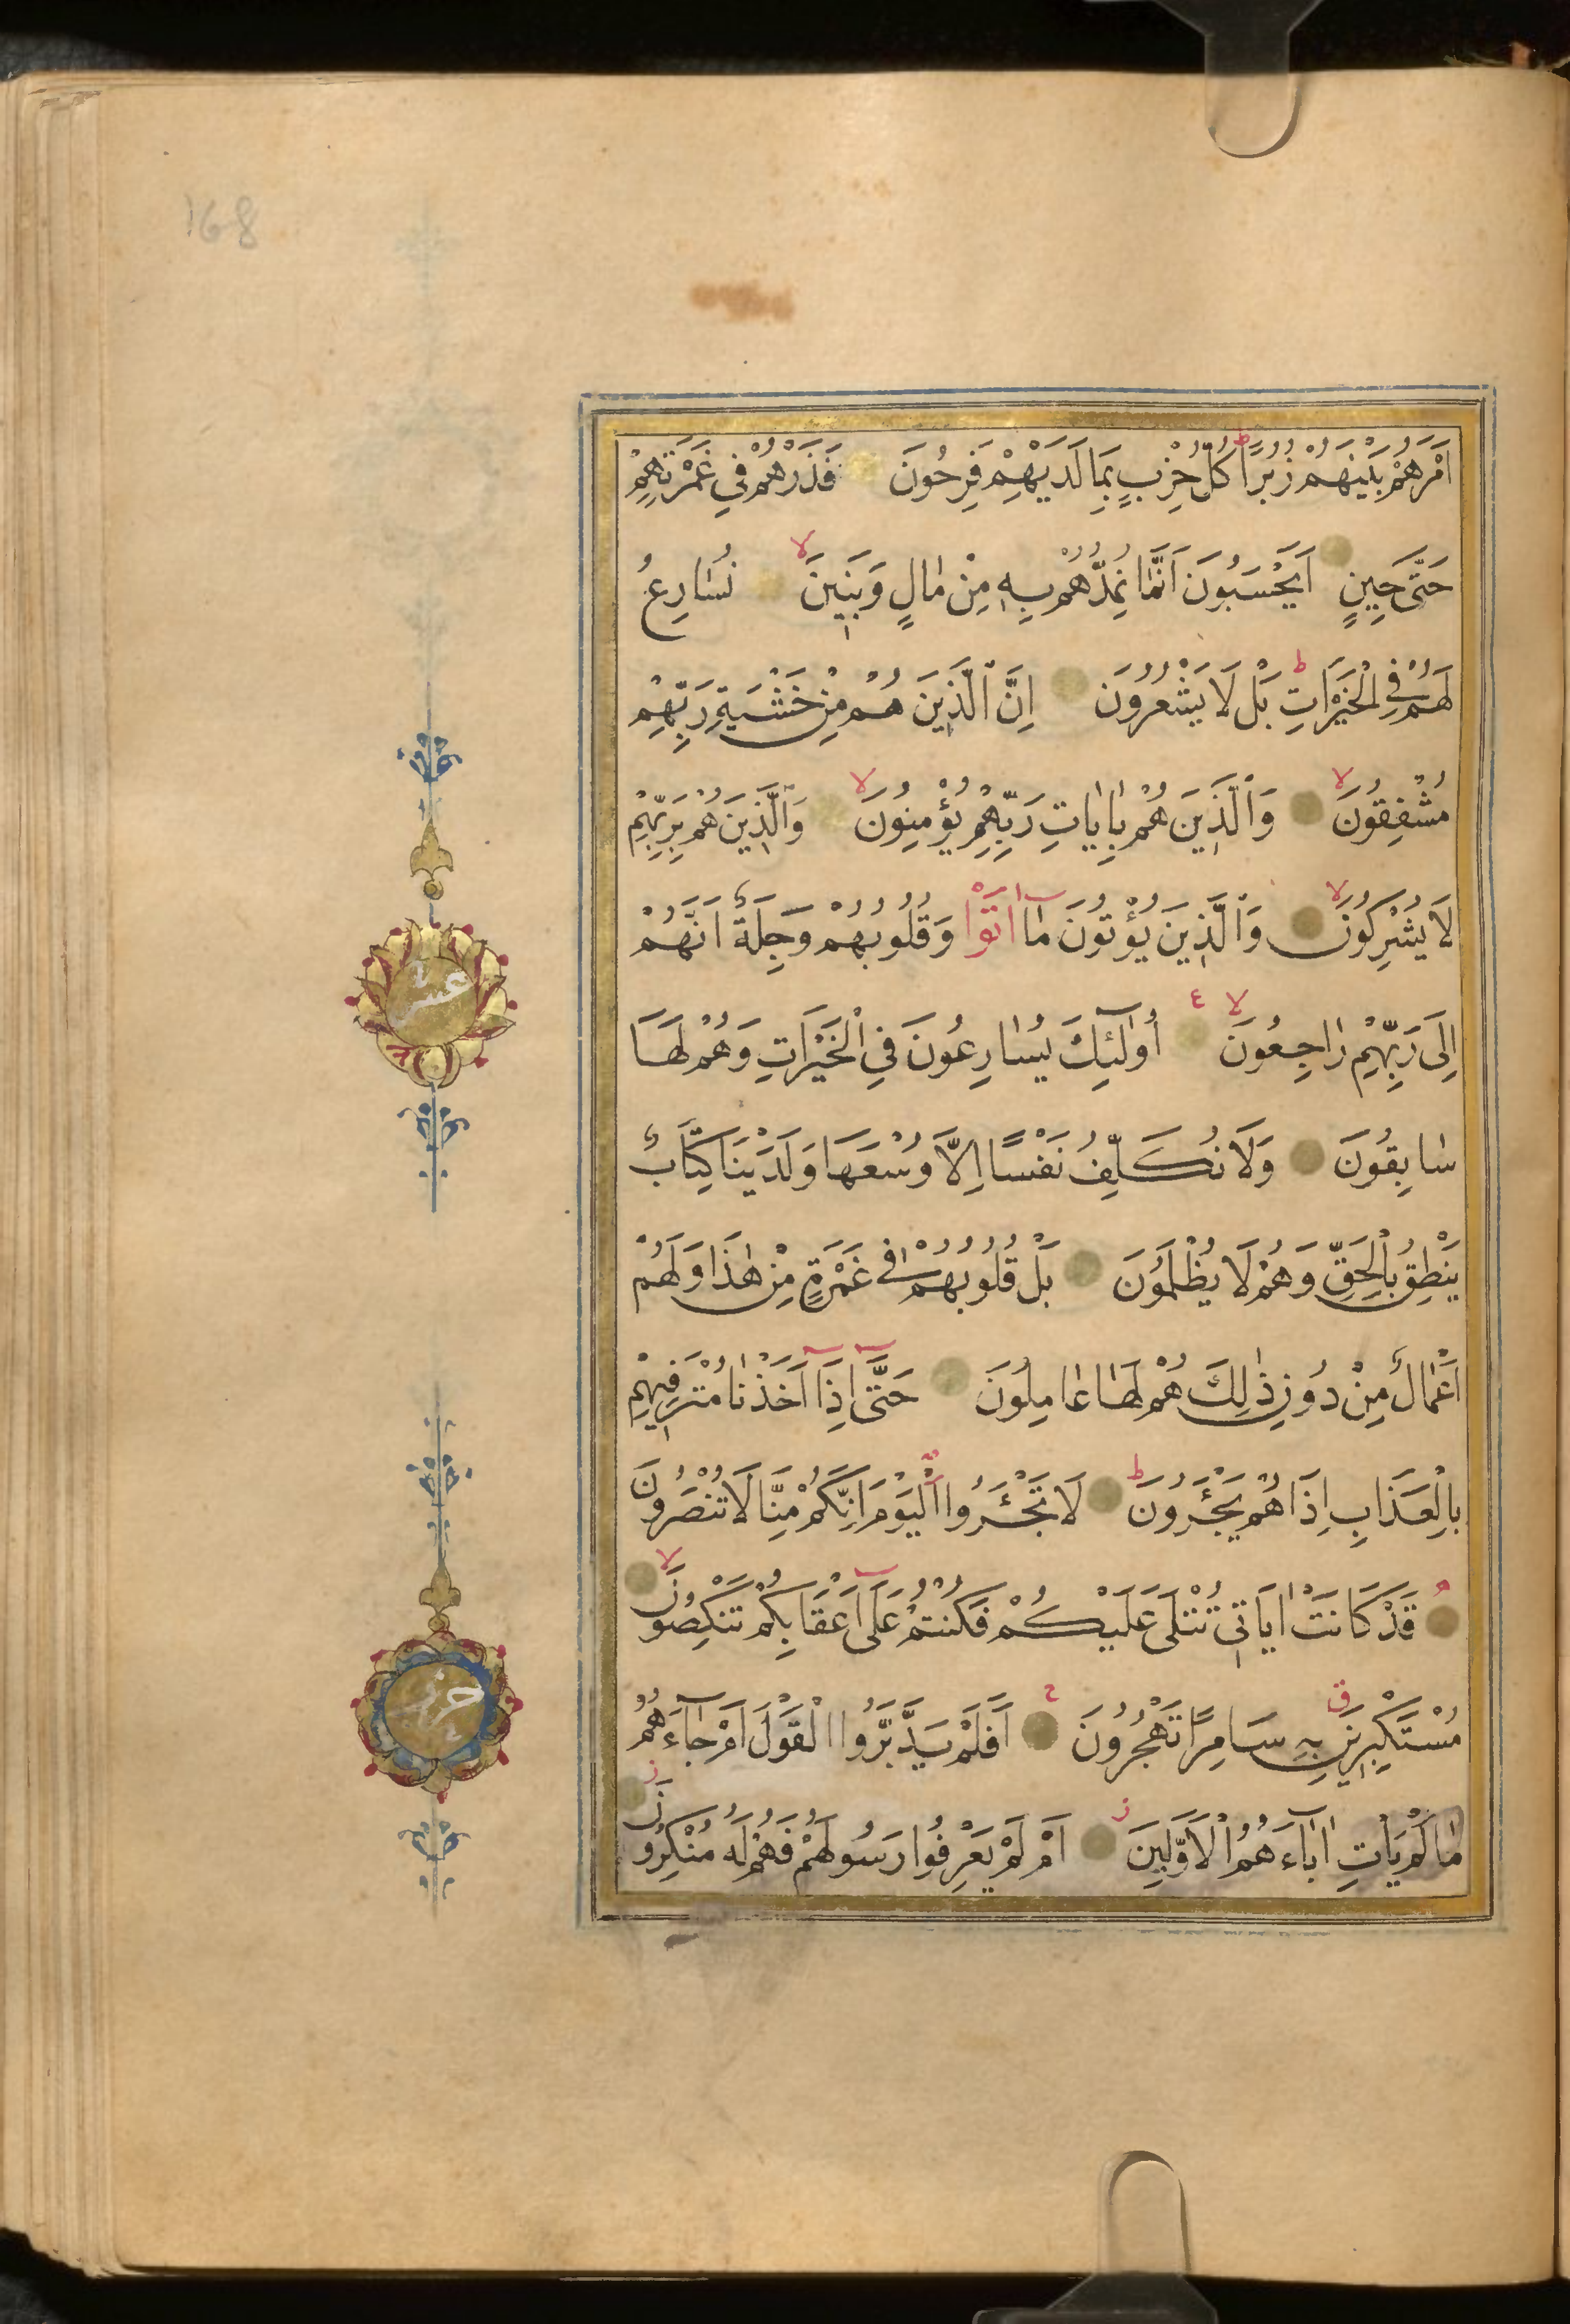 168
اَمْرَهُمْ بَيْنَهُمْ زُبُرًا ط كُلُّ حِزْبٍ بِمَا لَدَيْهِمْ فَرِحُونَ فَذَرْهُمْ فِي غَمْرَتِهِمْ
حَتّٰى حِينٍ اَيَحْسَبُونَ اَنَّمَا نُمِدُّهُمْ بِهٖ مِنْ مَالٍ وَبَنِينَ لا نُسَارِعُ
لَهُمْ فِي الْخَيْرَاتِ ط بَلْ لَا يَشْعُرُونَ اِنَّ الَّذِينَ هُمْ مِنْ خَشْيَةِ رَبِّهِمْ
مُشْفِقُونَ لا وَالَّذِينَ هُمْ بِاٰيَاتِ رَبِّهِمْ يُؤْمِنُونَ لا وَالَّذِينَ هُمْ بِرَبِّهِمْ
لَا يُشْرِكُونَ لا وَالَّذِينَ يُؤْتُونَ مَا اٰتَوْا وَقُلُوبُهُمْ وَجِلَةٌ اَنَّهُمْ
اِلٰى رَبِّهِمْ رَاجِعُونَ لا ع اُولٰئِكَ يُسَارِعُونَ فِي الْخَيْرَاتِ وَهُمْ لَهَا
سَابِقُونَ وَلَا نُكَلِّفُ نَفْسًا اِلَّا وُسْعَهَا وَلَدَيْنَا كِتَابٌ
يَنْطِقُ بِالْحَقِّ وَهُمْ لَا يُظْلَمُونَ بَلْ قُلُوبُهُمْ فِي غَمْرَةٍ مِنْ هٰذَا وَلَهُمْ
اَعْمَالٌ مِنْ دُونِ ذٰلِكَ هُمْ لَهَا عَامِلُونَ حَتّٰى اِذَا اَخَذْنَا مُتْرَفِيهِمْ
بِالْعَذَابِ اِذَا هُمْ يَجْـَٔرُونَ ط لَا تَجْـَٔرُوا الْيَوْمَ اِنَّكُمْ مِنَّا لَا تُنْصَرُونَ
قَدْ كَانَتْ اٰيَاتِي تُتْلٰى عَلَيْكُمْ فَكُنْتُمْ عَلٰى اَعْقَابِكُمْ تَنْكِصُونَ لا
مُسْتَكْبِرِينَ ق بِهٖ سَامِرًا تَهْجُرُونَ اَفَلَمْ يَدَّبَّرُوا الْقَوْلَ اَمْ جَاءَهُمْ
مَا لَمْ يَأْتِ اٰبَاءَهُمُ الْاَوَّلِينَ ز اَمْ لَمْ يَعْرِفُوا رَسُولَهُمْ فَهُمْ لَهُ مُنْكِرُونَ ز
عشر
حزب